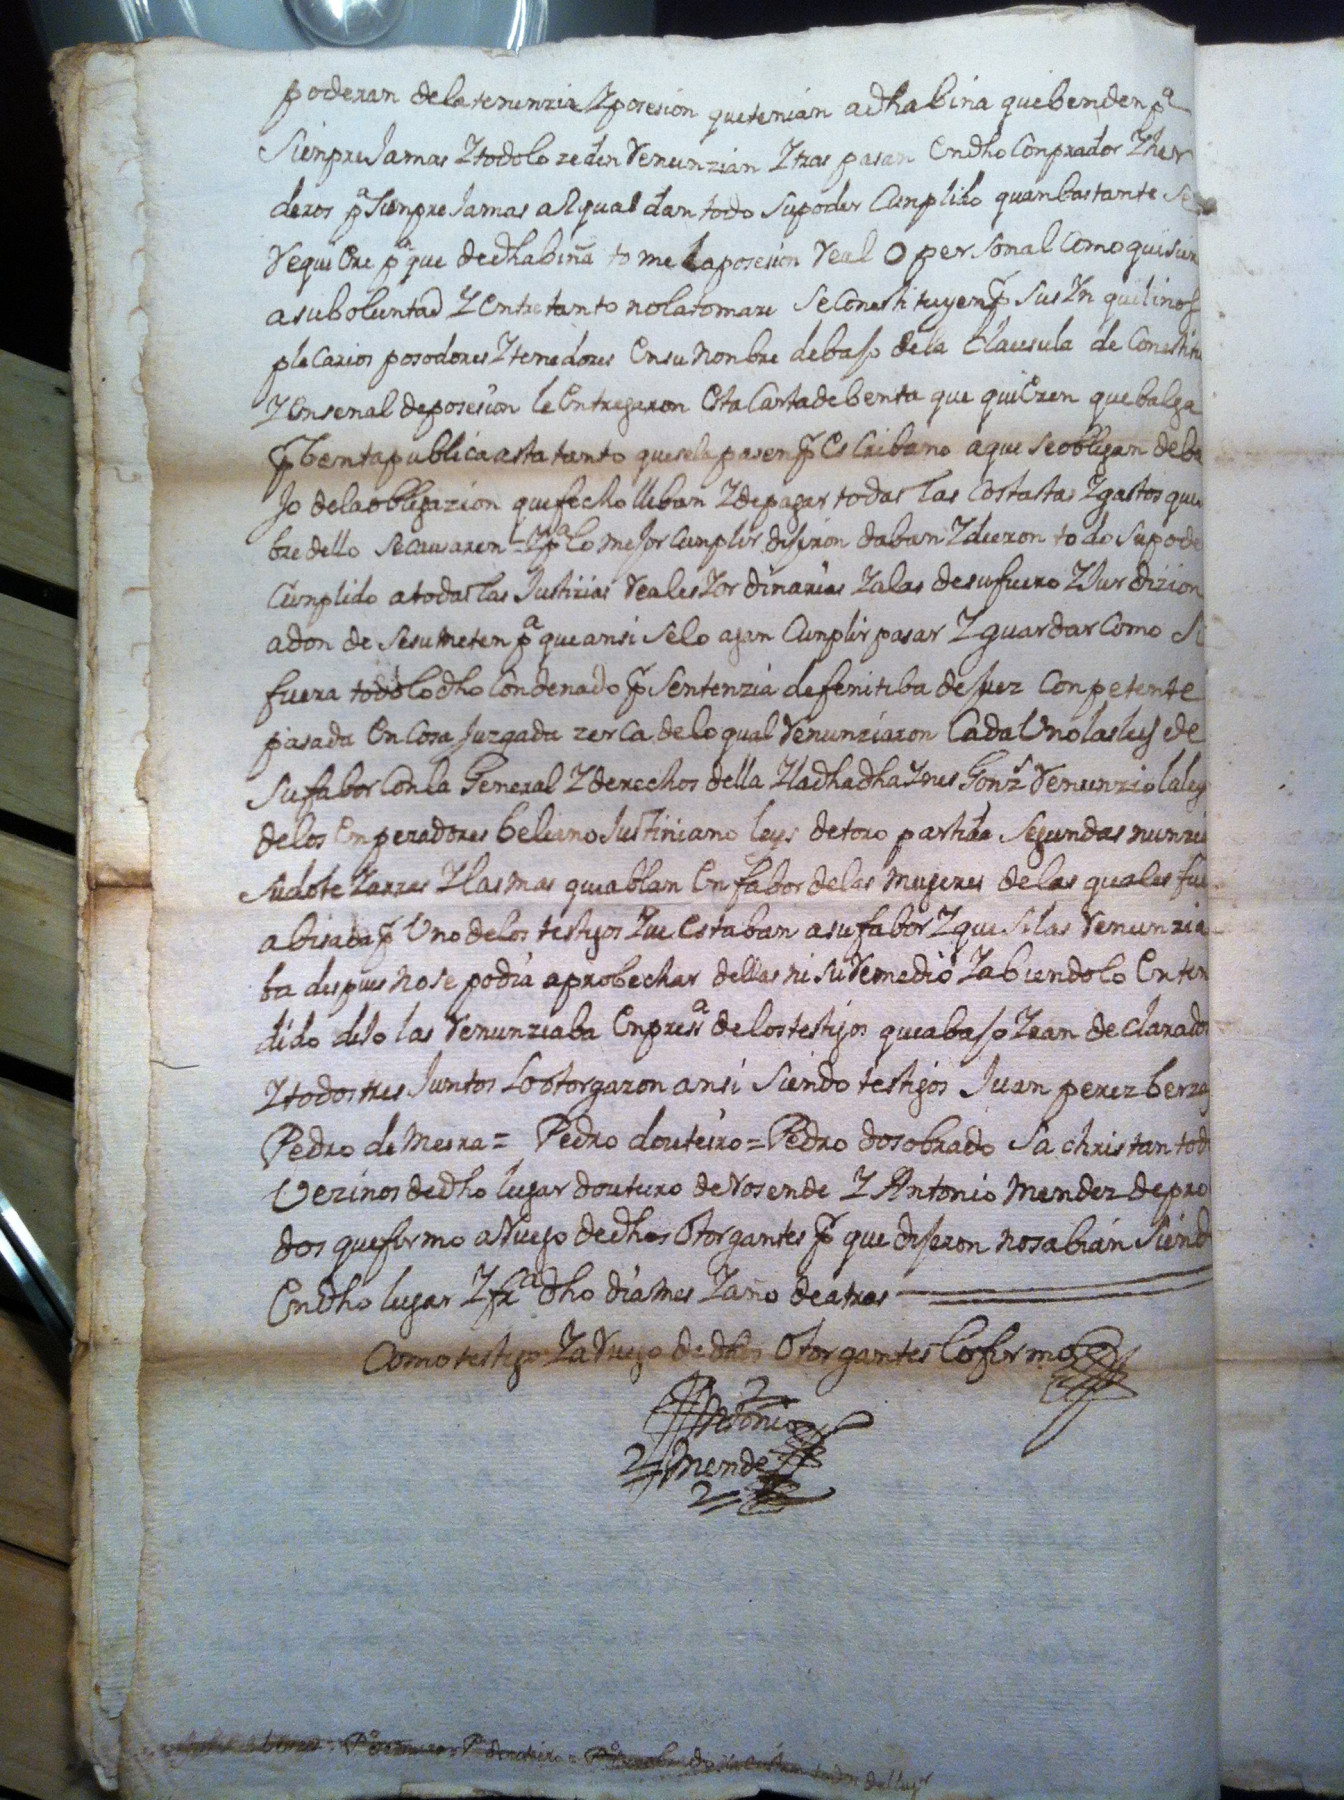 poderan dela tenunzia Y posesion que tenian a dha bina que benden pª
Sienpre Jamas Y todo lo zeden Renunzian Y tras pasan En dho Conprador Y her
deros pª Sienpre Jamas al qual dan todo su poder Cunplido quan bastante se
Requiere pª que de dha biña tome la posesion Real O personal Como quisier
a su boluntad Y Entretanto no la tomare Se Constituyen p Sus Ynquilinos
plecarios posodores Y tenedores En su nonbre debajo de la Clausula de Constitu
Y En senal de posesion le Entregaron Esta Carta de benta que quieren que balga
p benta publica asta tanto que se la pasen p Escribano a que se obligan deba
Jo de la obligazion que fecho lleban Y de pagar todas las Costastas Y gastos que
bre dello se Causaren = Y pª lo mejor Cunplir dijeron daban Y dieron todo su pode
Cunplido a todas las Justizias Reales Y ordinarias Y a las de su fuero Y Jurdizion
adonde se sumeten pª que ansi se lo agan Cunplir pasar Y guardar Como Si
fuera todo lo dho Condenado p Sentenzia defenitiba de Juez Conpetente
pasada En Cosa Juzgada zerca de lo qual Renunziaron Cada Uno las leys de
Su fabor Con la General Y derechos della Y la dha dha Ynes Gonz Renunzio la ley
de los Enperadores beliano Justiniano leys de toro partida Segundas nunzia
Su dote Y arras Y las mas que ablan En fabor de las Mugeres de las quales fue
abisada p Uno de los testigos Que Estaban a su fabor Y que si las Renunzia
ba despues no se podia aprobechar dellas ni su Remedio Y abiendolo Enten
dido dijo las Renunziaba En presª de los testigos que abajo Yran declarados
Y todos tres Juntos lo otorgaron ansi Siendo testigos Juan perez berza
Pedro de Meira = Pedro douteiro = Pedro dosobrado Sachristan tod
Vezinos de dho lugar douteiro de Rosende Y Antonio Mendez de pra
dos que firmo a Ruego de dhos Otorgantes p que dijeron no sabian Siend
En dho lugar Y frª dho dia mes Y año de atras
Como testigo Y a Ruego de dhos Otorgantes lo firmo
Antonio
Mendez